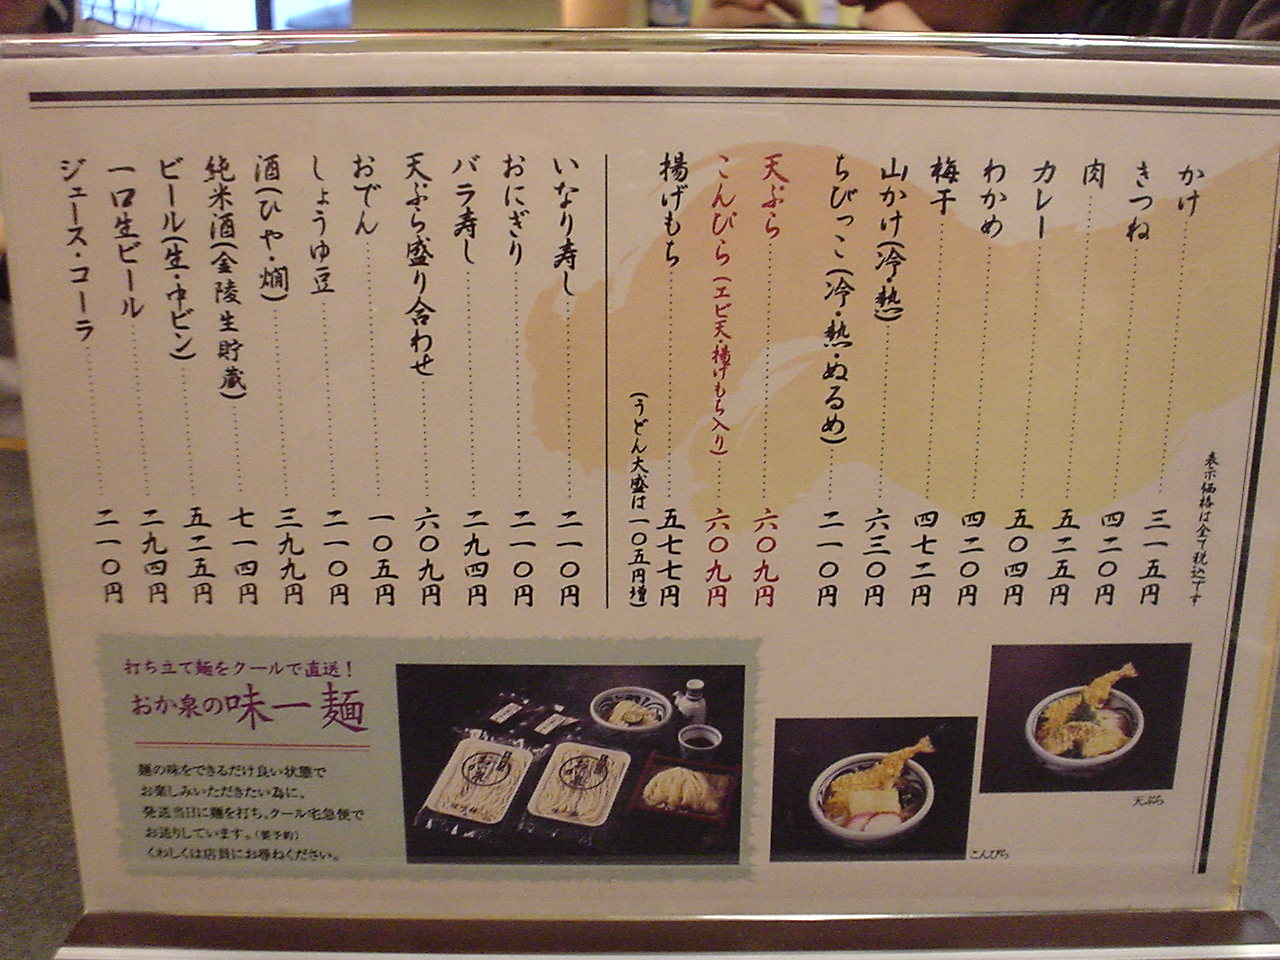 表示価格は全て税込です
かけ 三一五円
きつね 四二〇円
肉 五二五円
カレー 五〇四円
わかめ 四二〇円
梅干 四七二円
山かけ(冷・熱) 六三〇円
ちびっこ(冷・熱・ぬるめ) 二一〇円
天ぷら 六〇九円
こんぴら(エビ天・揚げもち入り) 六〇九円
揚げもち 五七七円
(うどん大盛は一〇五円増)
いなり寿し 二一〇円
おにぎり 二一〇円
バラ寿し 二九四円
天ぷら盛り合わせ 六〇九円
おでん 一〇五円
しょうゆ豆 二一〇円
酒(ひや・燗) 三九九円
純米酒(金陵生貯蔵) 七一四円
ビール(生・中ビン) 五二五円
一口生ビール 二九四円
ジュース・コーラ 二一〇円
天ぷら
こんぴら
打ち立て麺をクールで直送!
おか泉の味一麺
麺の味をできるだけ良い状態で
お楽しみいただきたい為に、
発送当日に麺を打ち、クール宅急便で
お送りしています。(要予約)
くわしくは店員にお尋ねください。